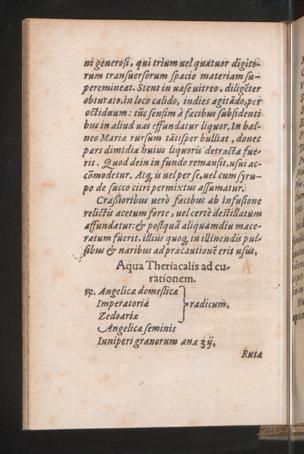 ni generosi, qui trium uel quatuor digitō-
rum transuersorum spacio materiam su-
peremineat. Stent in uase uitreo, diligēter
obturato, in loco calido, indies agitādo, per
octiduum: tūc sensim à fæcibus subsidenti
bus in aliud uas effundatur liquor. In bal-
neo Mariæ rursum tātisper bulliat, donec
pars dimidia huius liquoris detracta fue-
rit. Quod dein in fundo remansit, usui ac-
cōmodetur. Atq; is uel per se, uel cum syru-
po de succo citri permixtus assumatur.
Crassioribus uerò fæcibus ab infusione
relictis acetum forte, uel certè destillatum
affundatur: & postquā aliquamdiu mace-
ratum fuerit, illius quoq; in illinendis pul-
sibus & naribus ad præcautionē erit usus.
Aqua Theriacalis ad cu-
rationem.
℞. Angelicæ domesticæ
Imperatoriæ
radicum,
Zedoariæ
Angelicæ seminis
Iuniperi granorum ana ʒij.
Rutæ